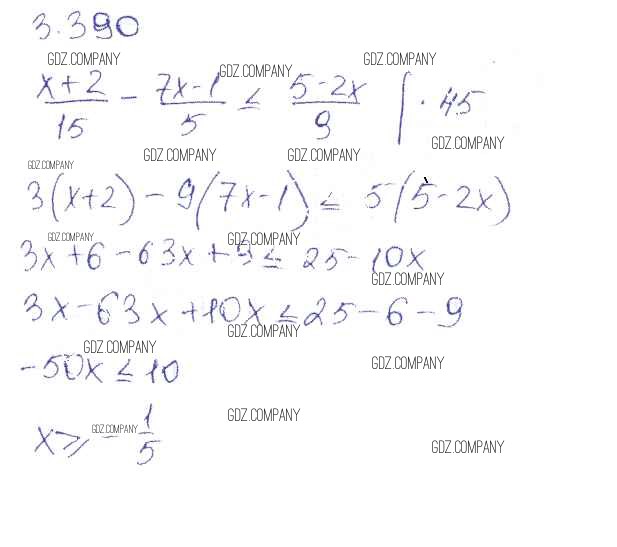 3.390
GDZ.COMPANY GDZ.COMPANY GDZ.COMPANY
(x+2)/15 - (7x-1)/5 ≤ (5-2x)/9 | · 45
GDZ.COMPANY GDZ.COMPANY GDZ.COMPANY
GDZ.COMPANY
3(x+2) - 9(7x-1) ≤ 5(5-2x)
GDZ.COMPANY GDZ.COMPANY
3x+6-63x+9≤ 25-10x
GDZ.COMPANY
3x-63x+10x≤25-6-9
GDZ.COMPANY
GDZ.COMPANY GDZ.COMPANY
-50x≤10
GDZ.COMPANY GDZ.COMPANY
x≥ -1/5
GDZ.COMPANY